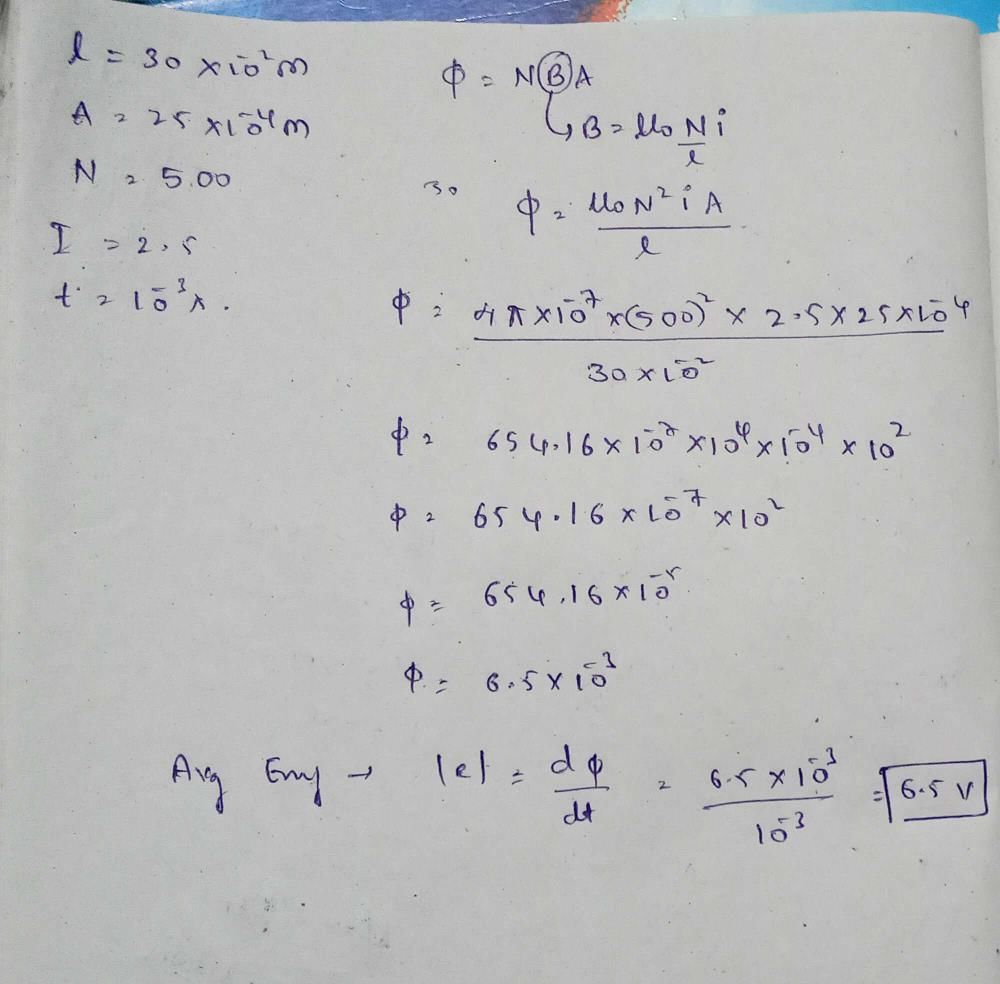 l = 30 × 10⁻² m
A = 25 × 10⁻⁴ m
N = 5.00
I = 2.5
t = 10⁻³ s.
ϕ = NBA
↳ B = μ₀ N i / l
30
ϕ = μ₀ N² i A / l
ϕ = 4π × 10⁻⁷ × (500)² × 2.5 × 25 × 10⁻⁴ / 30 × 10⁻²
ϕ = 654.16 × 10⁻⁷ × 10⁴ × 10⁻⁴ × 10²
ϕ = 654.16 × 10⁻⁷ × 10²
ϕ = 654.16 × 10⁻⁵
ϕ = 6.5 × 10⁻³
Avg Emf → |e| = dϕ / dt = 6.5 × 10⁻³ / 10⁻³ = 6.5 V